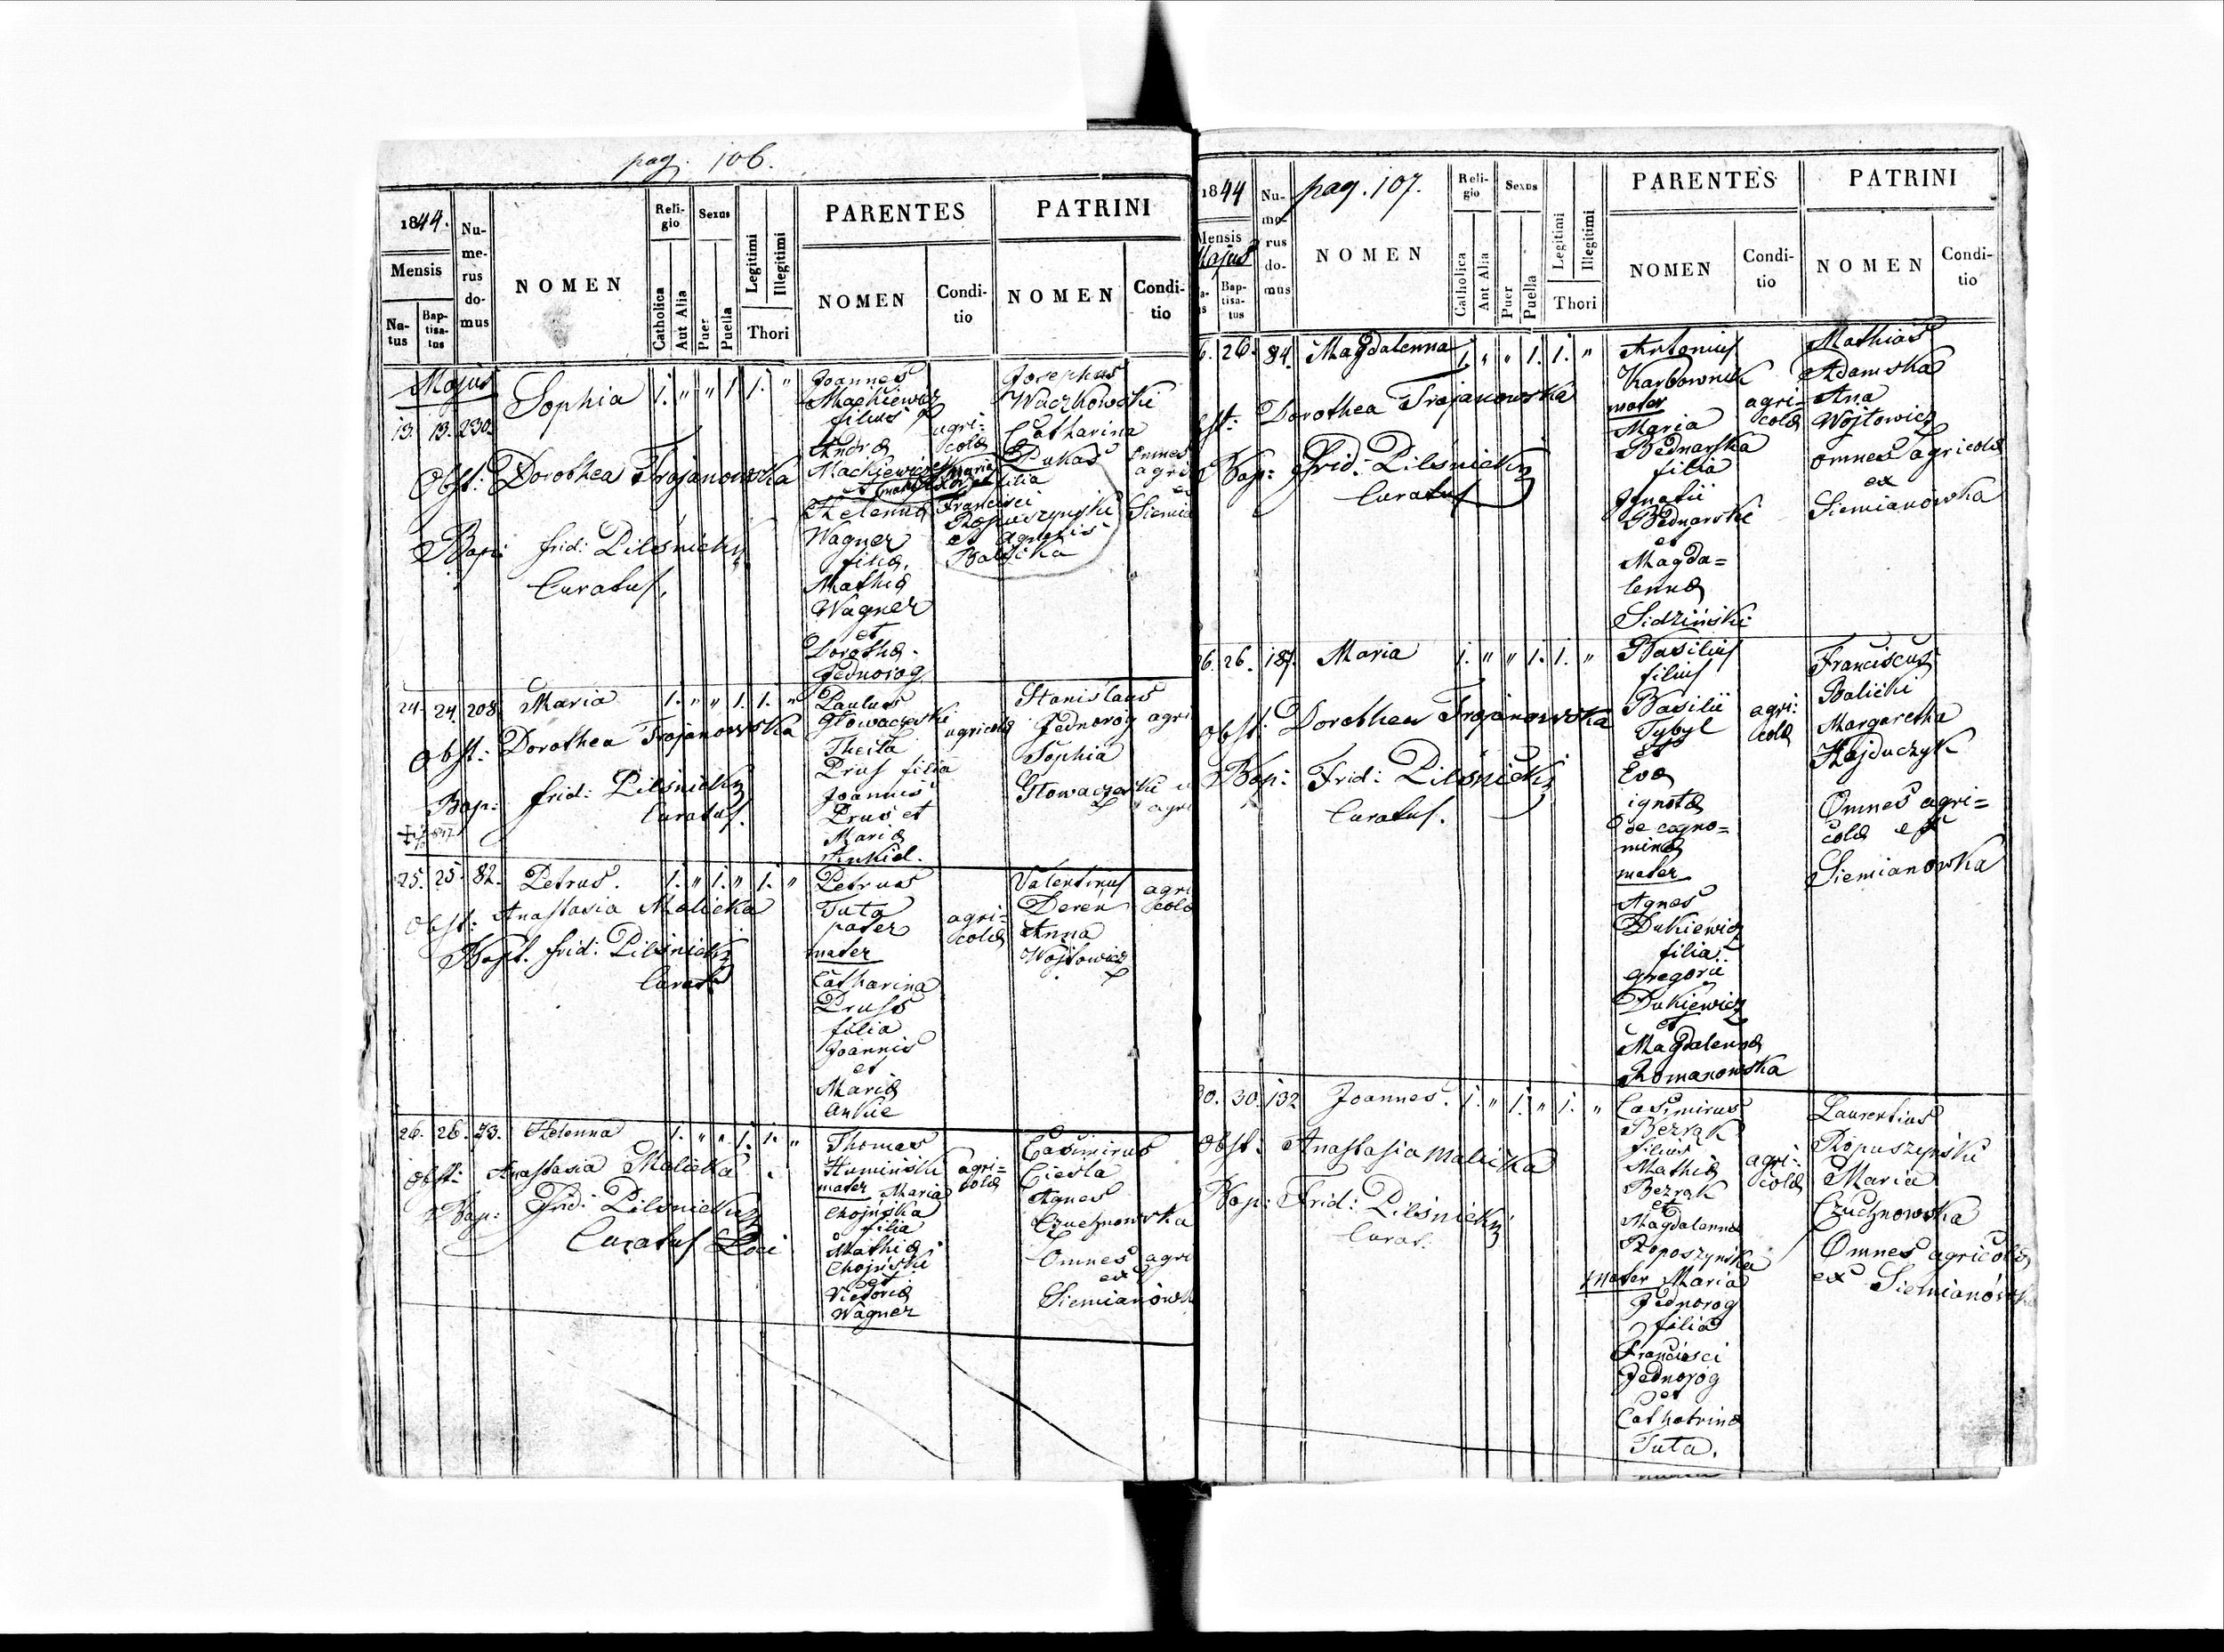 pag. 106.
1844.
Mensis
Na-
tus
Bap-
tisa-
tus
Nu-
me-
rus
do-
mus
NOMEN
Reli-
gio
Catholica
Aut Alia
Sexus
Puer
Puella
Legitimi
Illegitimi
Thori
PARENTES
NOMEN
Condi-
tio
PATRINI
NOMEN
Condi-
tio
Majus
13. 13. 230.
Sophia
1. " " 1 1. "
Obst: Dorothea Trajanowska
Bap: frid: Pilsnicky
Curatus.
Joannes
Mackiewicz
filius
Andræ
Mackiewicz et Maria
filia
Francisci
Ropuszynski
et Agnetis
Balicka
Helenna
Wagner
filia
Mathiæ
Wagner
et
Dorothæ
Jednorog
agri=
colæ
Josephus
Waczkowski
Catharina
Lukas
omnes
agri
24. 24. 208
Maria
1. " " 1. 1. "
Obst: Dorothea Trajanowska
Bap: frid: Pilsnicky
Curatus.
Paulus
Głowaczeski
Thecla
Prus filia
Joannis
Prus et
Mariæ
Ankiel.
agricolæ
Stanislaus
Jednorog agri
Sophia
Głowaczeski
agri
25. 25. 82.
Petrus.
1. " 1. " 1. "
Obst: Anastasia Malicka
Bapt. frid: Pilsnicky
Curat.
Petrus
Tuta
pater
mater
Catharina
Pruss
filia
Joannis
et
Mariæ
Ankie
agri=
colæ
Valentinus
Deren
Anna
Wojtowicz
agri
colæ
26. 26. 73.
Helenna
1. " " 1. 1. "
Obst: Anastasia Malicka
Bap: Frid: Pilsnicky
Curatus Loci
Thomas
Huminski
mater Maria
Chojńska
filia
Mathiæ
Chojński
et
Victoriæ
Wagner
agri=
colæ
Casimirus
Ciesla
Agnes
Czuchnowska
Omnes agri
ex
Siemianowk
1844
Mensis
Majus
Bap-
tisa-
tus
Nu-
me-
rus
do-
mus
pag. 107.
NOMEN
Reli-
gio
Catholica
Aut Alia
Sexus
Puer
Puella
Legitimi
Illegitimi
Thori
PARENTES
NOMEN
Condi-
tio
PATRINI
NOMEN
Condi-
tio
6. 26. 84.
Magdalenna
1. " " 1. 1. "
Obst: Dorothea Trajanowska
Bap: Frid: Pilsnicky
Curatus
Antonius
Karbownik
mater
Maria
Bednarska
filia
Ignatii
Bednarski
et
Magda=
lennæ
Sidzinski
agri=
colæ
Mathias
Adamska
Ana
Wojtowicz
omnes agricolæ
ex
Siemianowka
26. 26. 187.
Maria
1. " " 1. 1. "
Obst: Dorothea Trajanowska
Bap: Frid: Pilsnicky
Curatus.
Basilius
filius
Basilii
Tybyl
et
Evæ
ignotæ
de cogno=
minæ
mater
Agnes
Dukiewicz
filia
Gregorii
Dukiewicz
et
Magdalenæ
Romanowska
agri:
colæ
Franciscus
Balicki
Margaretha
Hajduczyk
Omnes agri=
colæ ex
Siemianowka
30. 30. 132
Joannes.
1. " 1. " 1. "
Obst: Anastasia Malicka
Bap: Frid: Pilsnicky
Curat.
Casimirus
Bezrąk
filius
Mathiæ
Bezrąk
et
Magdalennæ
Roposzynska
mater Maria
Jednorog
filia
Francisci
Jednorog
et
Cathatrinæ
Tuta.
agri=
colæ
Laurentius
Ropuszynski
Maria
Czuchnowska
Omnes agricolæ
ex Siemianowka